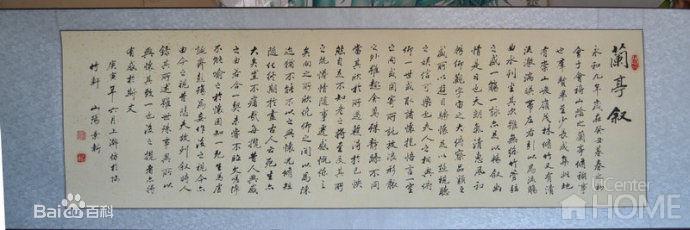 蘭亭叙
永和九年歲在癸丑暮春之初
會于會稽山陰之蘭亭脩禊事
也羣賢畢至少長咸集此地
有崇山峻嶺茂林脩竹又有清
流激湍暎帶左右引以為流觴
曲水列坐其次雖無絲竹管弦
之盛一觴一詠亦足以暢叙幽
情是日也天朗氣清惠風和
暢仰觀宇宙之大俯察品類之
盛所以遊目騁懷足以極視聽
之娛信可樂也夫人之相與俯
仰一世或取諸懷抱悟言一室
之內或因寄所託放浪形骸
之外雖趣舍萬殊靜躁不同
當其欣於所遇暫得於己快
然自足不知老之將至及其所
之既惓情隨事遷感慨係之
矣向之所欣俛仰之間以為陳
迹猶不能不以之興懷況脩短
隨化終期於盡古人云死生亦
大矣豈不痛哉每攬昔人興感
之由若合一契未嘗不臨文嗟悼
不能喻之於懷固知一死生為虛
誕齊彭殤為妄作後之視今亦
由今之視昔悲夫故列叙時人
錄其所述雖世殊事異所以
興懷其致一也後之攬者亦將
有感於斯文
庚寅年六月上澣仿於
竹軒 山陽
Bai百科
UCenter
HOME